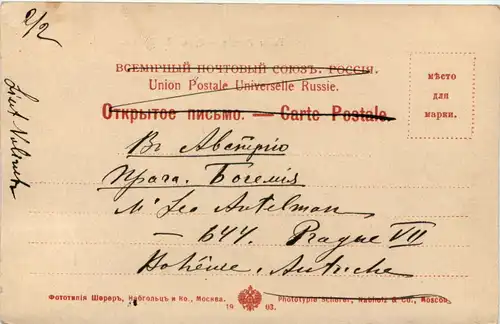 2/2
ВСЕМІРНЫЙ ПОЧТОВЫЙ СОЮЗЪ. РОССІЯ.
Union Postale Universelle Russie.
Открытое письмо. — Carte Postale.
мѣсто
для
марки.
Въ Австрію
Прага. Богемія
Mr Leo Antelman
— 644. Prague VII
Bohême, Autriche
Фототипія Шереръ, Набгольцъ и Ко., Москва.
19 03.
Phototypie Scherer, Nabholz & Co., Moscou